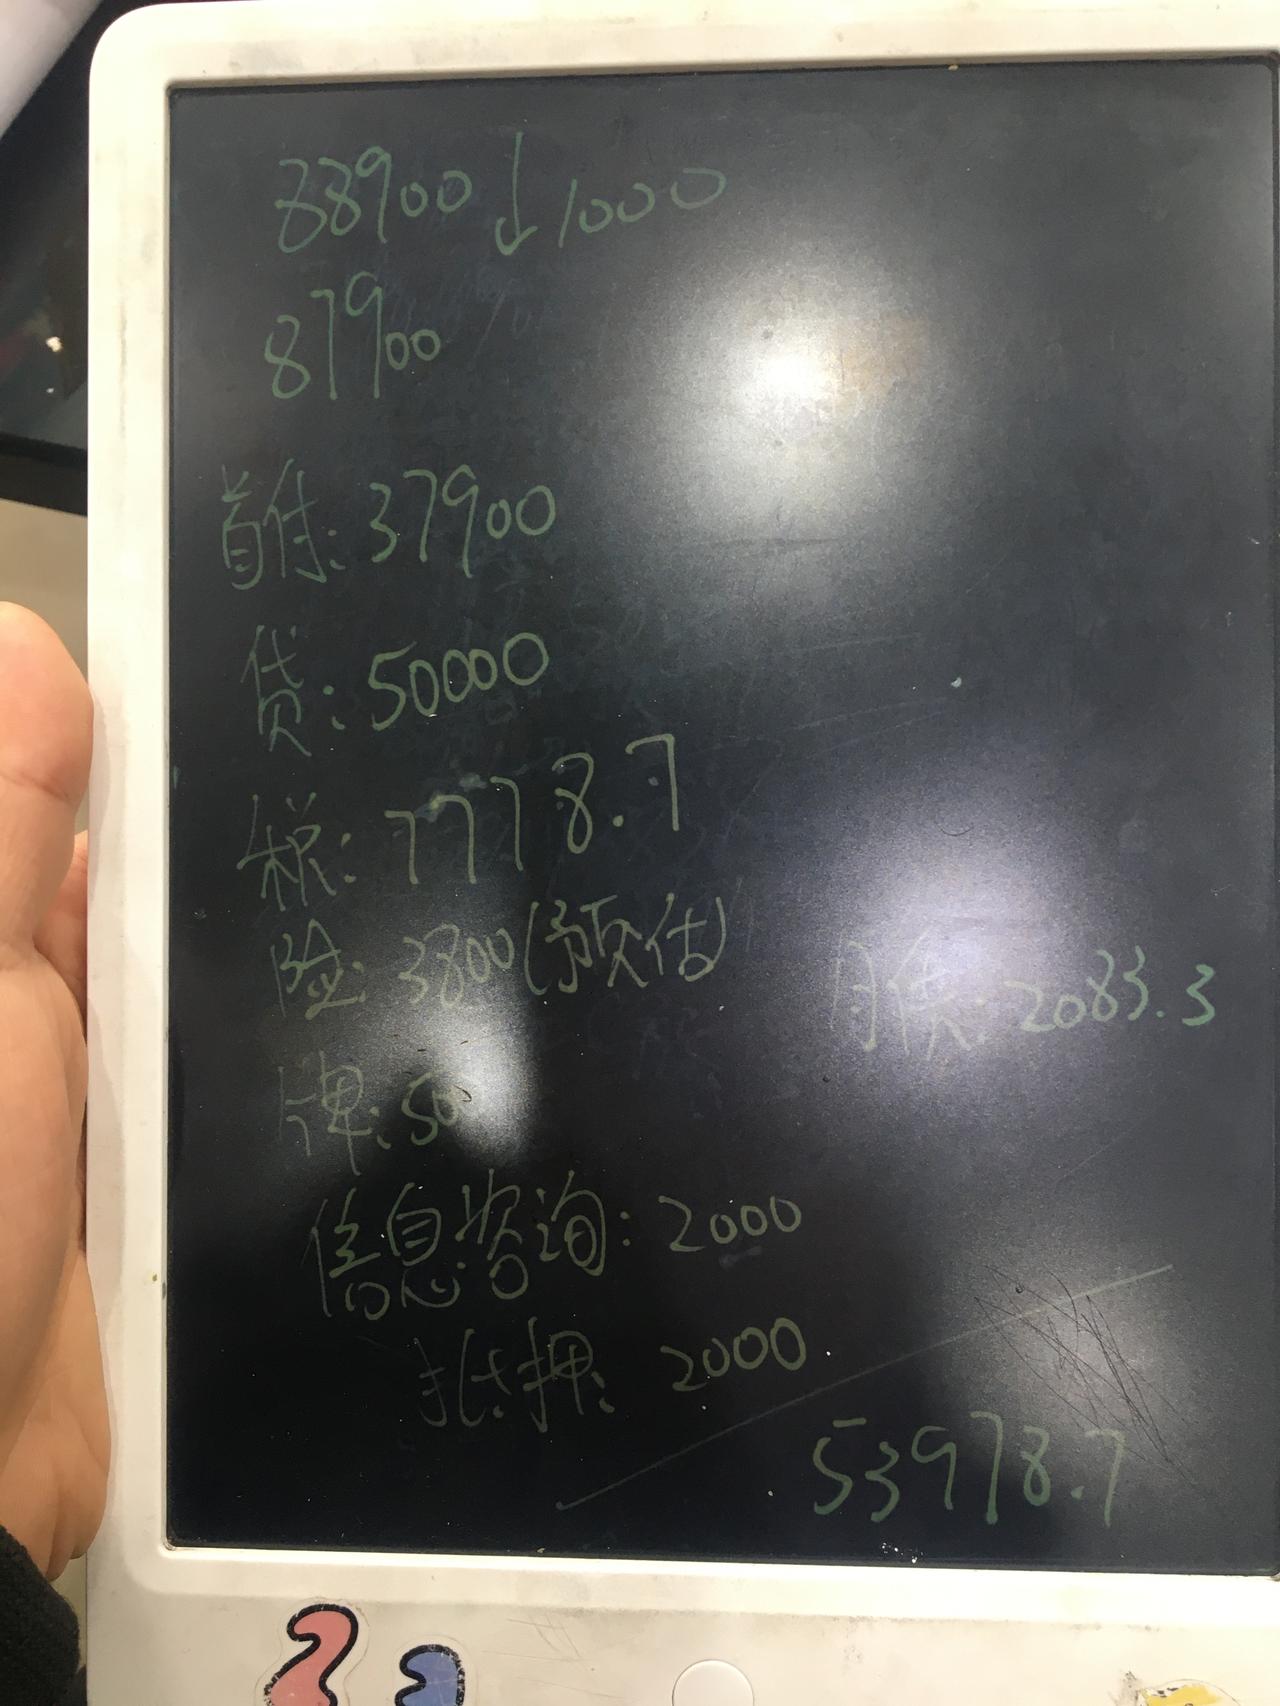 88900↓1000
87900
首付: 37900
贷: 50000
税: 7778.7
险: 3800(预估)
月供: 2083.3
牌: 500
信息咨询: 2000
抵押: 2000
53978.7
2 3